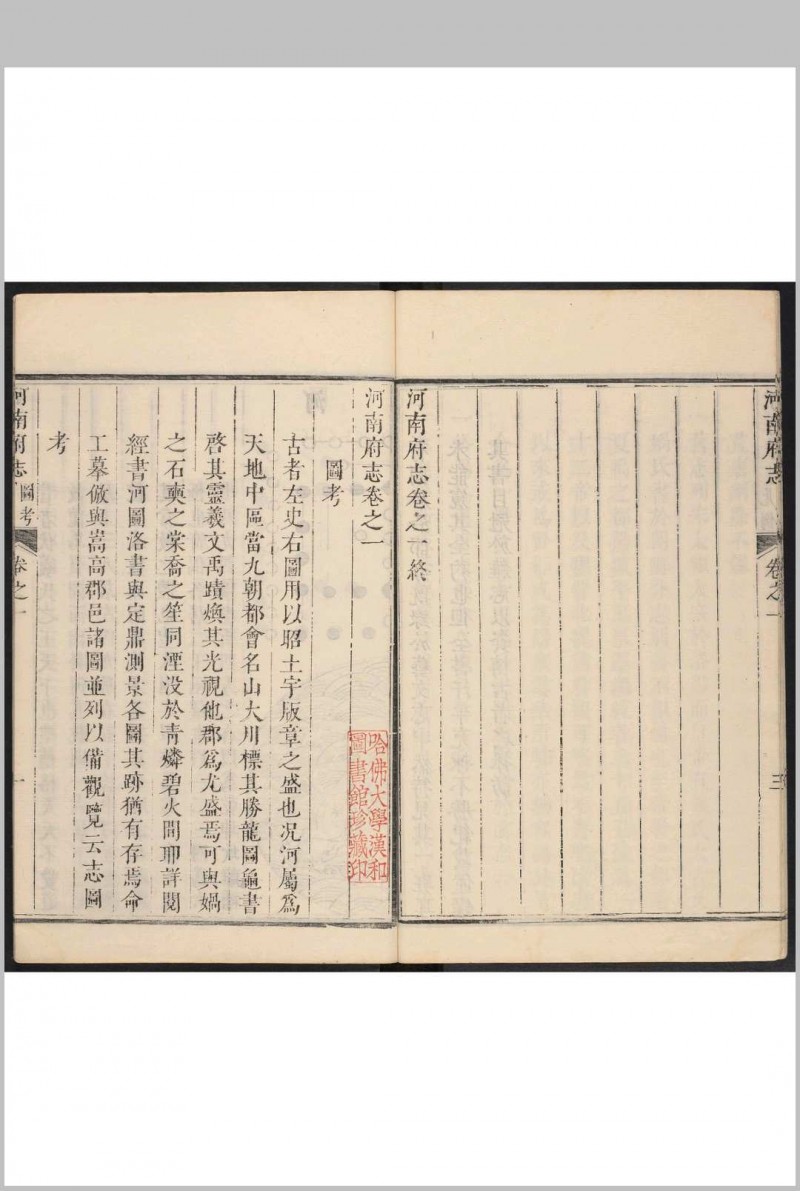 河南府志
卷之一
三
河南府志卷之一終
河南府志卷之一
圖考
古者左史右圖用以昭土宇版章之盛也况河屬爲
天地中區當九朝都會名山大川標其勝龍圖龜書
啓其靈羲文禹蹟煥其光視他郡爲尤盛焉可與媧
之石奭之棠喬之笙同湮没於青燐碧火間耶詳閱
經書河圖洛書與定鼎測景各圖其跡猶有存焉命
工摹倣與嵩高郡邑諸圖並列以備觀覽云志圖
考
河南府志
圖考
卷之一
一
哈佛大學漢和
圖書館珍藏印